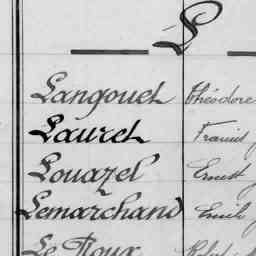 L
Langouet Théodore
Lauret Francis
Louazel Ernest
Lemarchand Emile
Le Roux